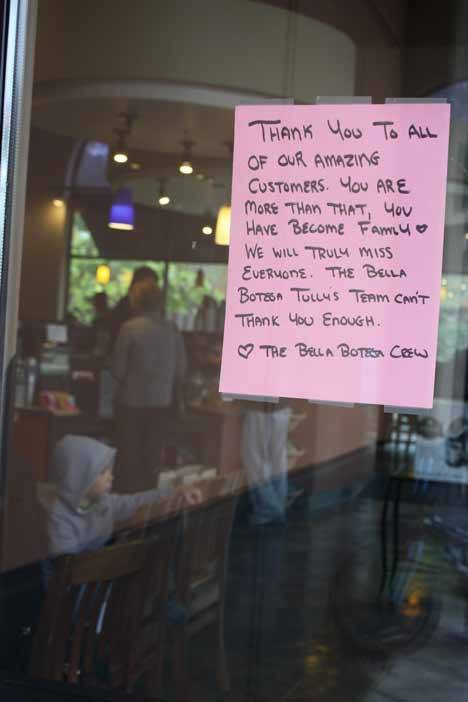 THANK YOU TO ALL
OF OUR AMAZING
CUSTOMERS. YOU ARE
MORE THAN THAT, YOU
HAVE BECOME FAMILY ♥
WE WILL TRULY MISS
EVERYONE. THE BELLA
BOTEGA TULLY'S TEAM CAN'T
THANK YOU ENOUGH.
♡ THE BELLA BOTEGA CREW